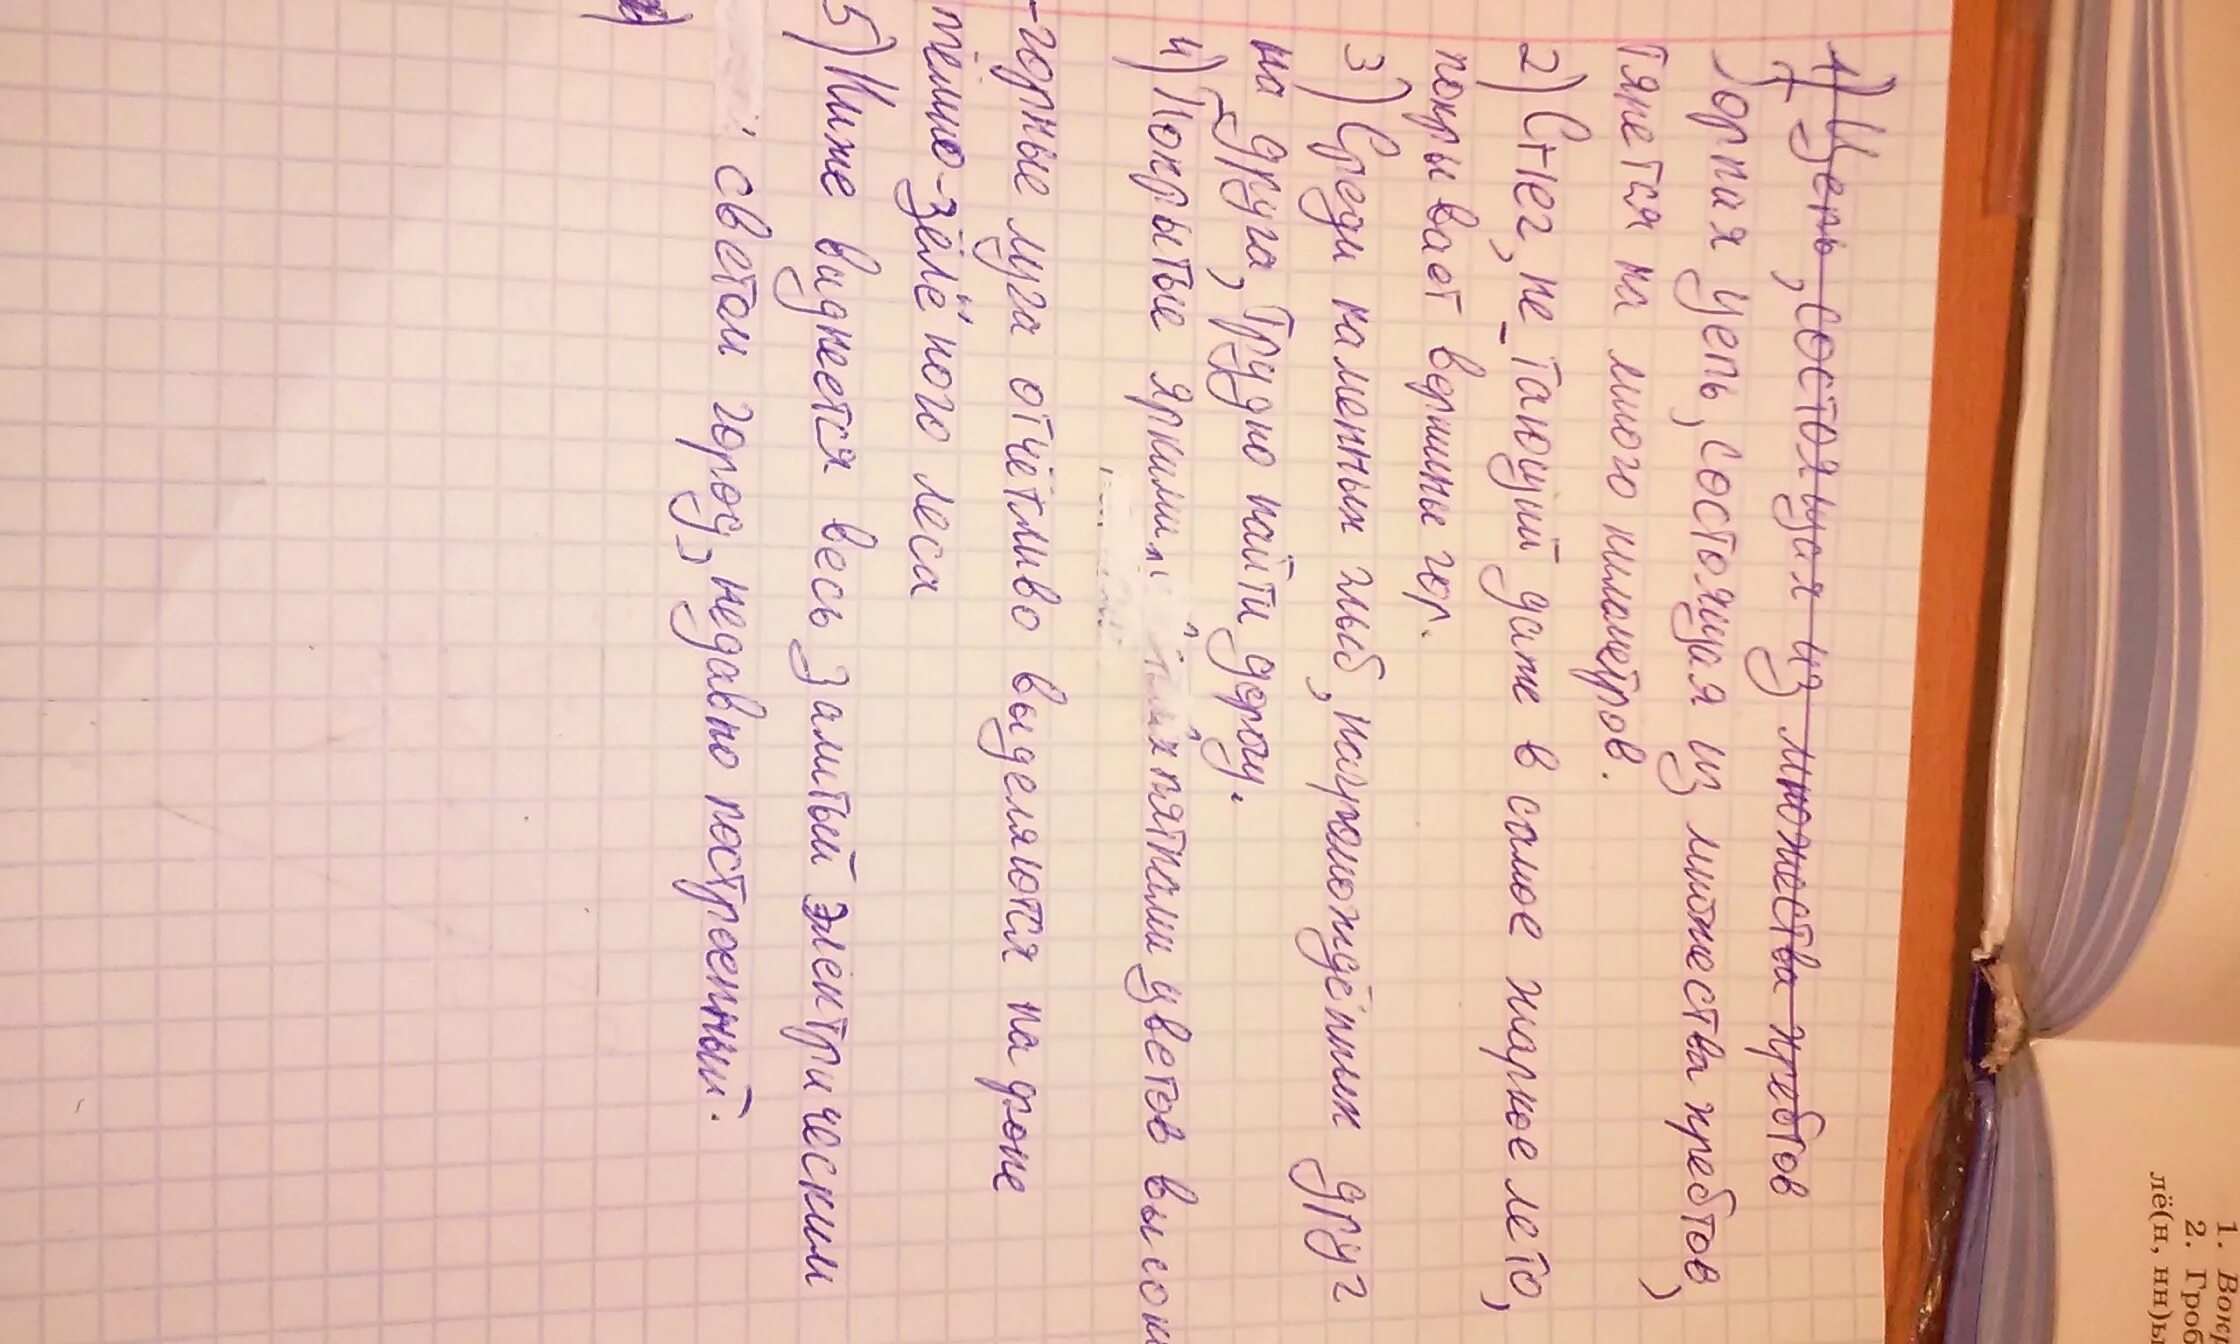 1) Цепь, состоящая из множества хребтов
Горная цепь, состоящая из множества хребтов,
тянется на много километров.
2) Снег, не тающий даже в самое жаркое лето,
покрывает вершины гор.
3) Среди каменных глыб, нагромождённых друг
на друга, трудно найти дорогу.
4) Покрытые яркими пятнами цветов высоко
-горные луга отчётливо выделяются на фоне
тёмно-зелёного леса
5) Ниже виднеется весь залитый электрическим
светом город, недавно построенный.
1. Вокр
2. Гроб
лё(н, нн)ы